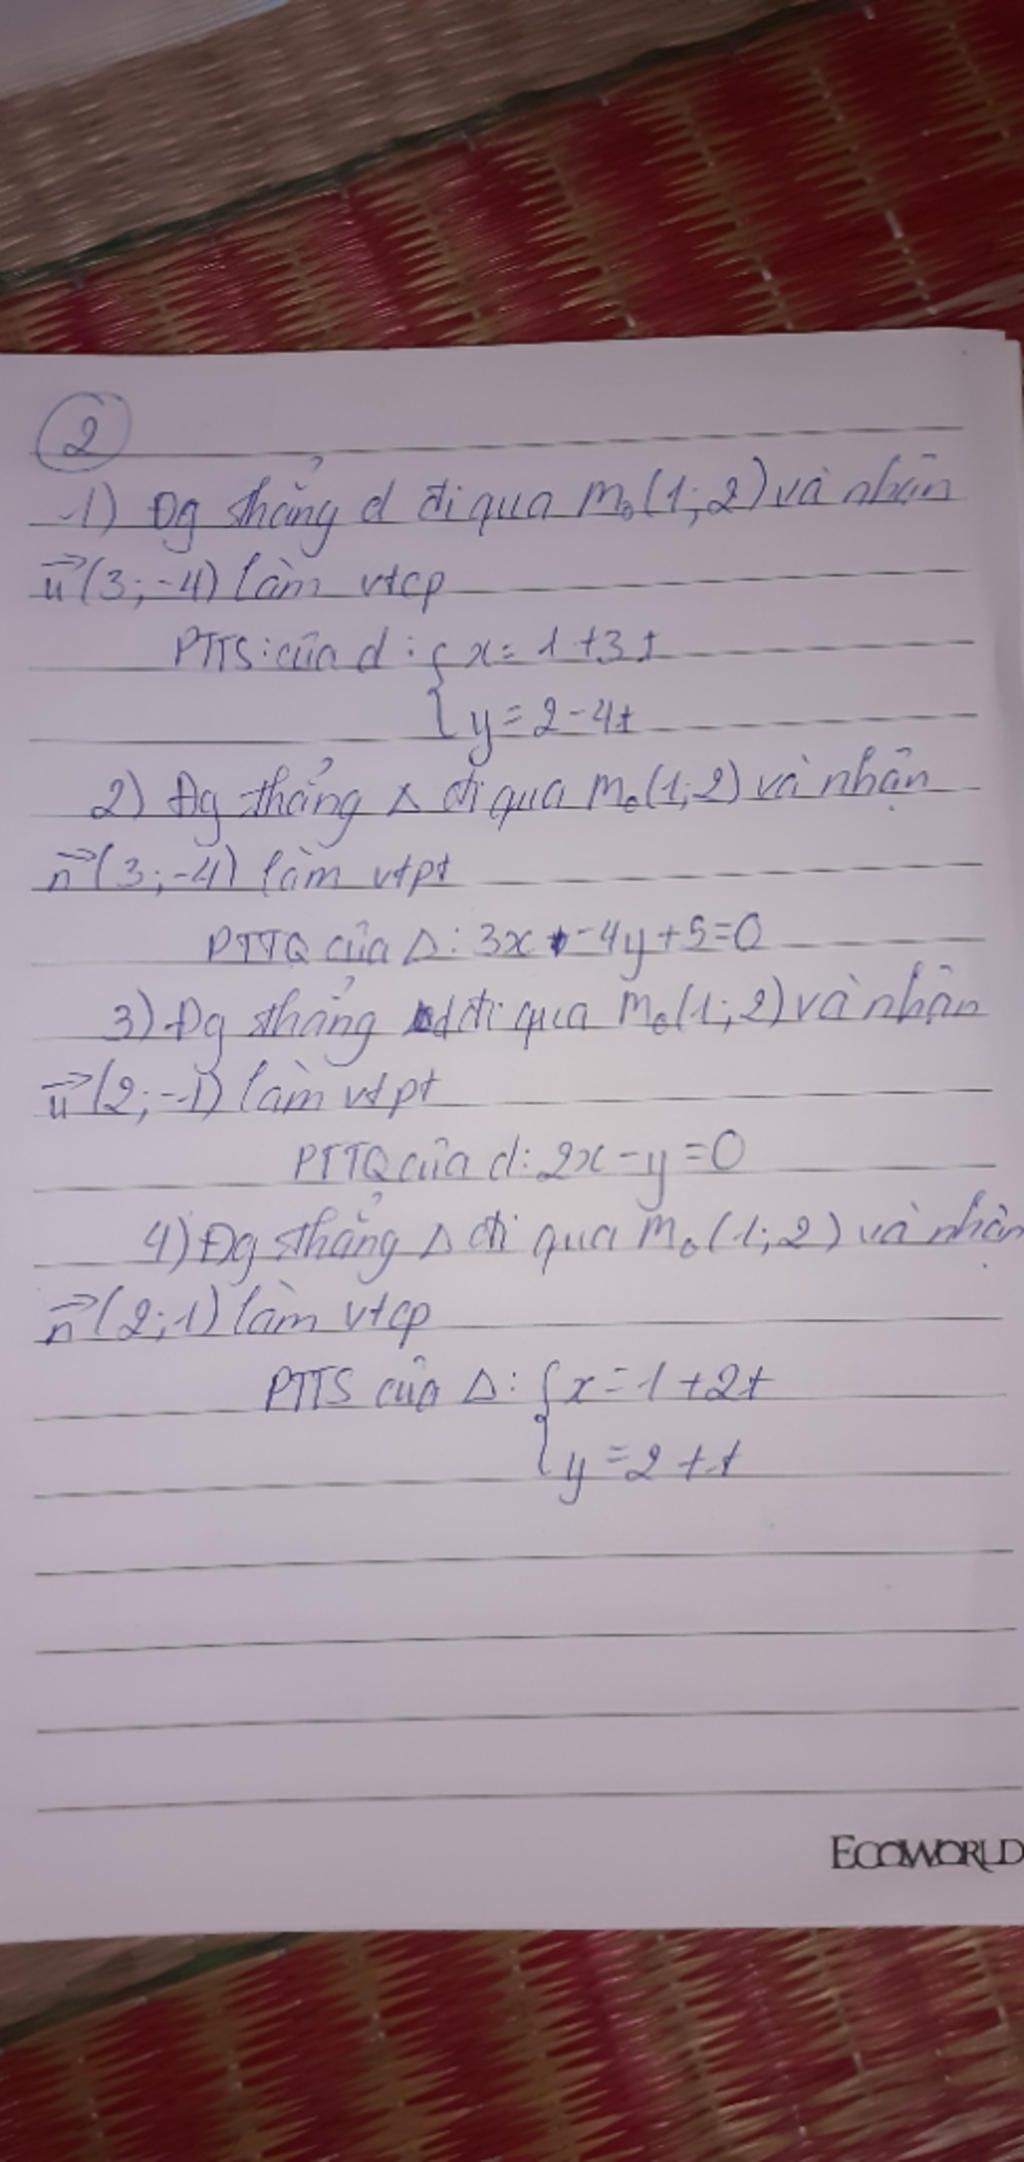 2
1) Đg thẳng d đi qua M₀(1;2) và nhận
u⃗(3;-4) làm vtcp
PTTS: của d: { x = 1 + 3t
{ y = 2 - 4t
2) Đg thẳng Δ đi qua M₀(1;2) và nhận
n⃗(3;-4) làm vtpt
PTTQ của Δ: 3x - 4y + 5 = 0
3) Đg thẳng d đi qua M₀(1;2) và nhận
u⃗(2;-1) làm vtpt
PTTQ của d: 2x - y = 0
4) Đg thẳng Δ đi qua M₀(1;2) và nhận
n⃗(2;1) làm vtcp
PTTS của Δ: { x = 1 + 2t
{ y = 2 + t
ECOWORLD